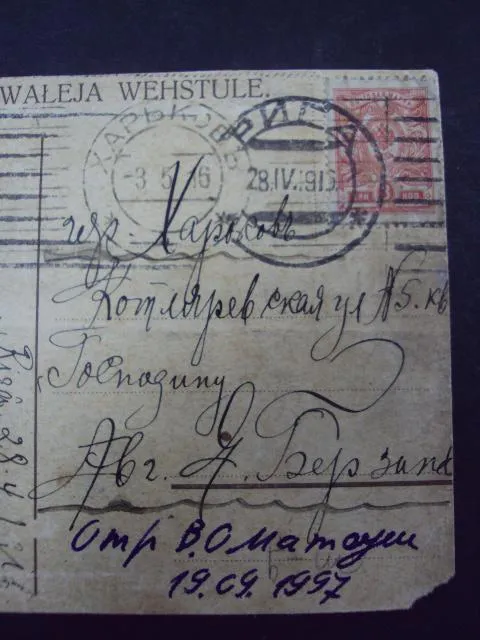 WALEJA WEHSTULE.
ХАРЬКОВЪ
3 5 16
РИГА
28.IV.1915
гор. Харьковъ
Котляревская ул №5. кв
Господину
Авг. Я. Берзинъ
Отр В.О
19.09.1997